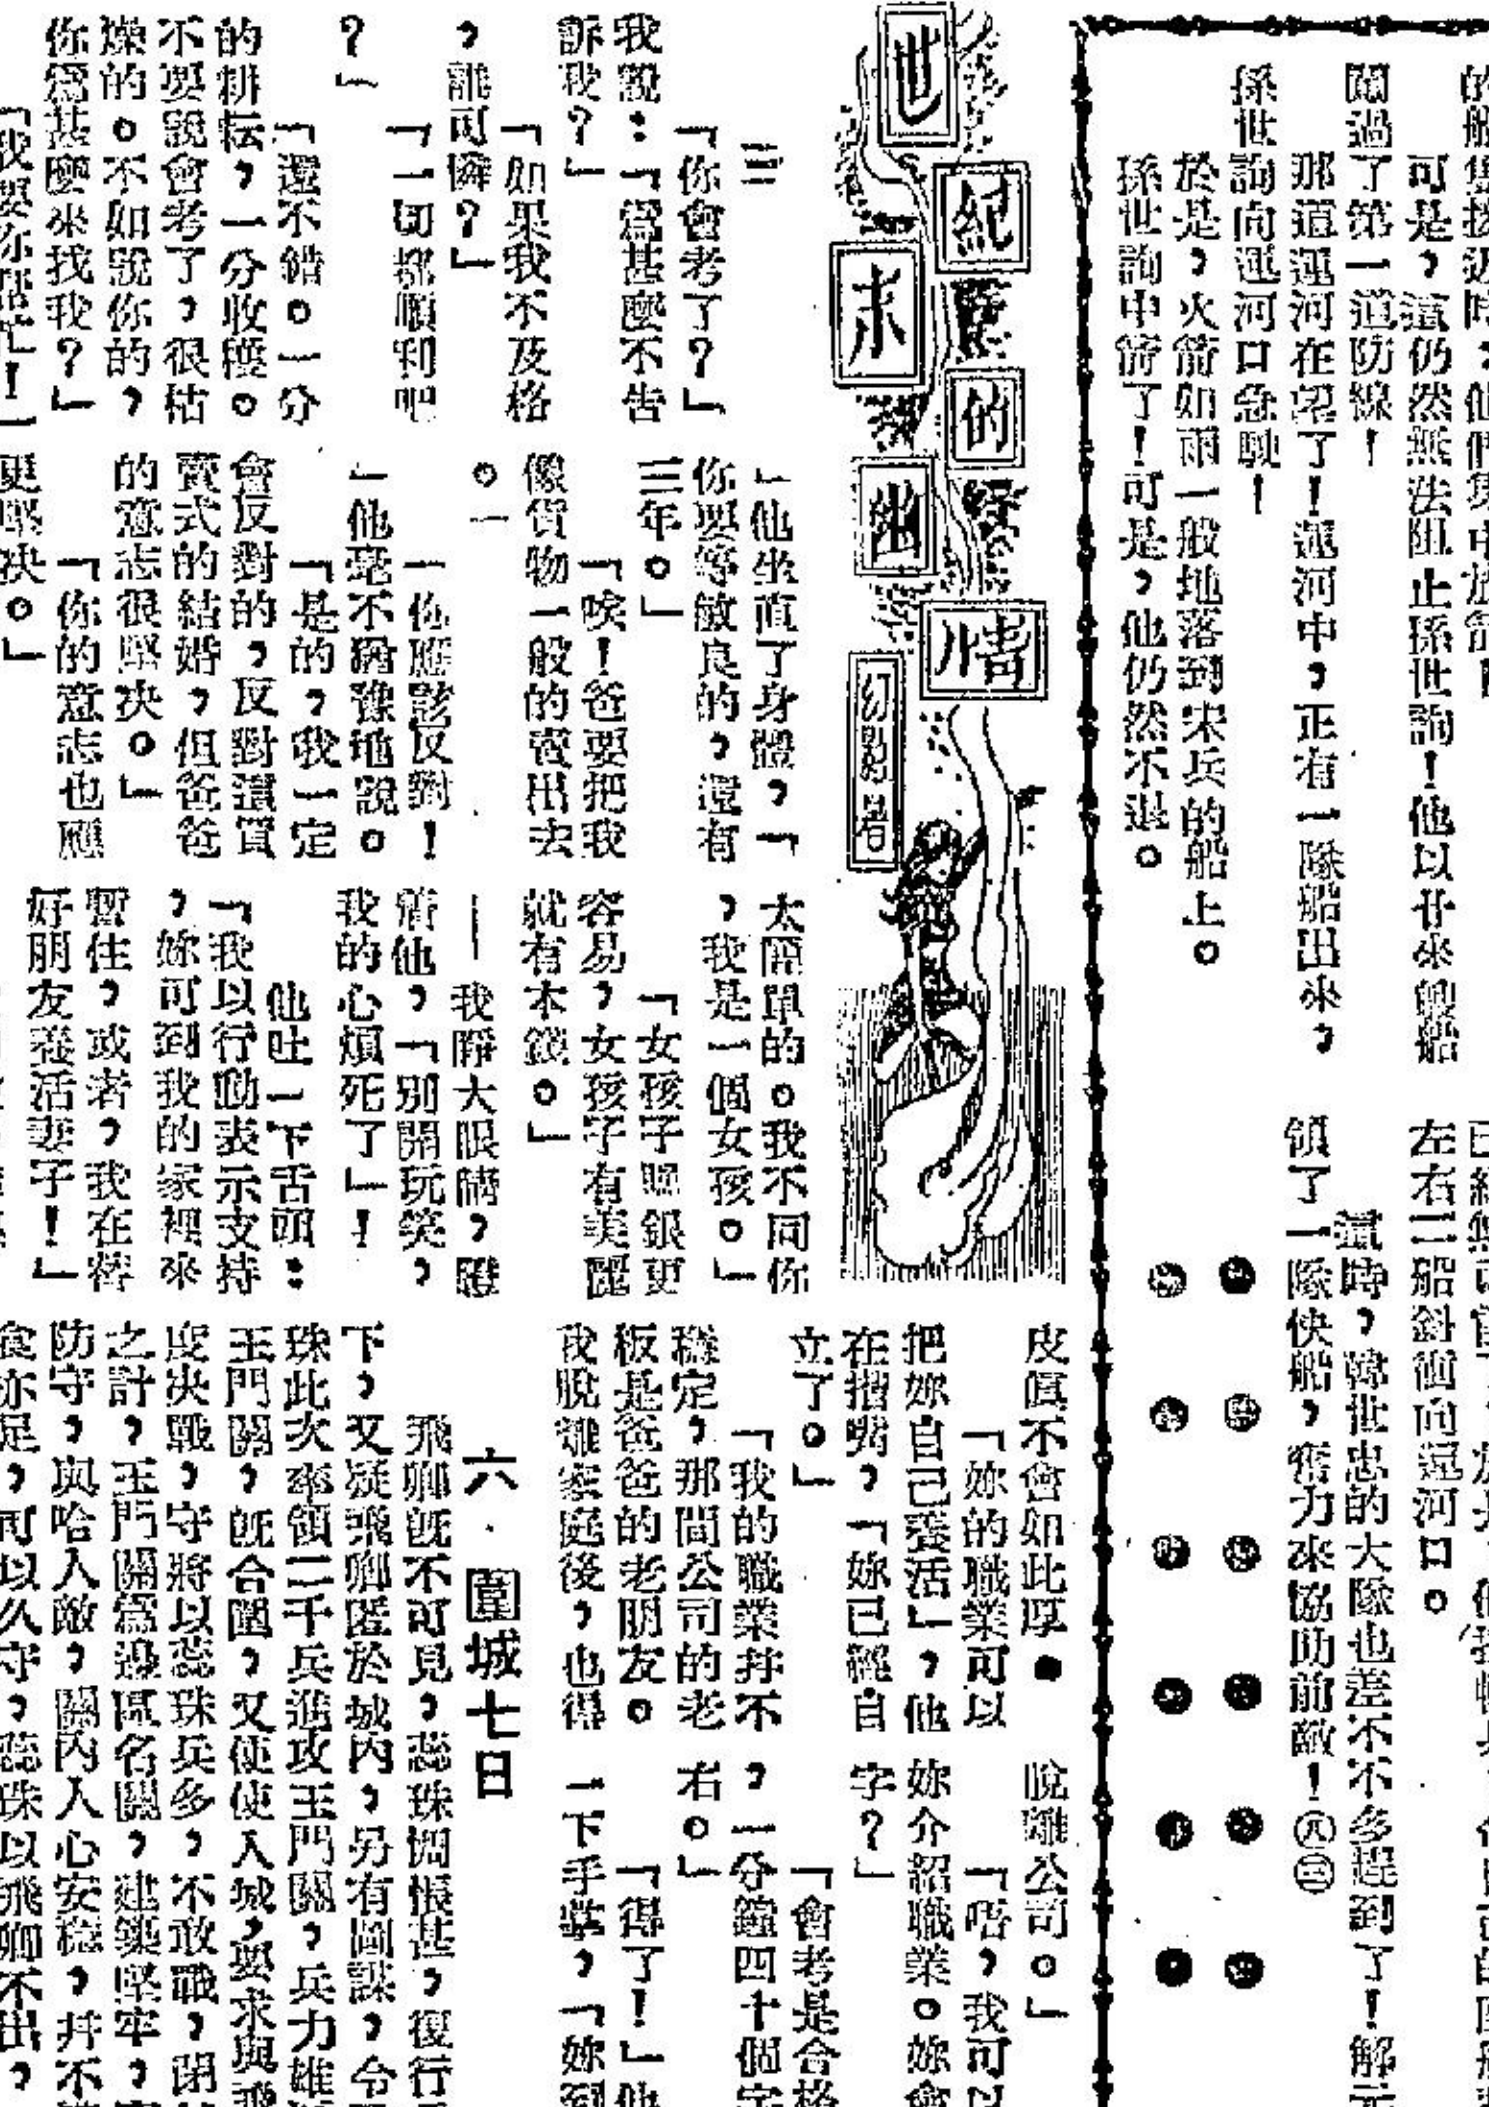 可是，這仍然無法阻止孫世詢！他以廿來艘船
闖過了第一道防線！
那道運河在望了！運河中，正有一隊船出來，
孫世詢向運河口急駛！
於是，火箭如雨一般地落到宋兵的船上。
孫世詢中箭了！可是，他仍然不退。
左右二船斜衝向運河口。
這時，韓世忠的大隊也差不多趕到了！解元
領了一隊快船，奮力來協助前敵！㊇㊂
世紀末的幽情
幻影者
三
「你會考了？」
我說：「爲甚麼不告
訴我？」
「如果我不及格
，誰可憐？」
「一切都順利吧
？」
「還不錯。一分
的耕耘，一分收穫。
不要說會考了，很枯
燥的。不如說你的，
你爲甚麼來找我？」
」他坐直了身體，「
你要等敏良的，還有
三年。」
「唉！爸要把我
像貨物一般的賣出去
。」
「你應該反對！
」他毫不猶豫地說。
「是的，我一定
會反對的，反對這買
賣式的結婚，但爸爸
的意志很堅决。」
「你的意志也應
更堅决。」
太簡單的。我不同你
，我是一個女孩。」
「女孩子賺銀更
容易，女孩子有美麗
就有本錢。」
——我睜大眼睛，瞪
着他，「別開玩笑，
我的心煩死了」！
他吐一下舌頭：
「我以行動表示支持
，妳可到我的家裡來
暫住，或者，我在替
好朋友養活妻子！」
皮眞不會如此厚
「妳的職業可以
把妳自己養活」，他
在揩嘴，「妳已經自
立了。」
「我的職業幷不
穩定，那間公司的老
板是爸爸的老朋友。
我脫離家庭後，也得
脫離公司。」
「唔，我可以
妳介紹職業。妳會
字？」
「會考是合格
，一分鐘四十個字
右。」
「得了！」他
一下手掌，「妳到
六．圍城七日
飛卿既不可見，蕊珠惆悵甚，復行
下，又疑飛卿匿於城內，另有圖謀，令
珠此次率領二千兵進攻玉門關，兵力雄
玉門關，既合圍，又使使入城，要求與飛
度决戰，守將以蕊珠兵多，不敢戰，閉
之計，玉門關爲邊區名關，建築堅牢，
防守，與哈入敵，關內人心安穩，幷不
食亦足，可以久守，蕊珠以飛卿不出，